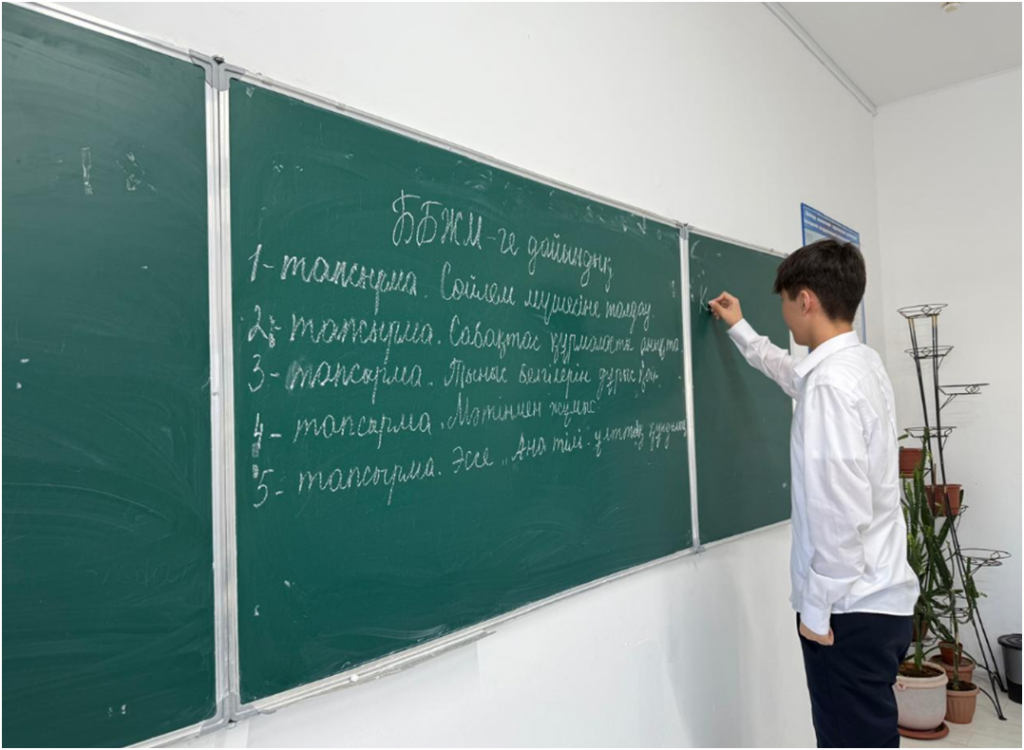 ББЖМ-ге дайындық
1-тапсырма. Сөйлем мүшесіне талдау.
2-тапсырма. Сабақтас құрмаласты анықта.
3-тапсырма. Тыныс белгілерін дұрыс қой.
4-тапсырма. Мәтінмен жұмыс
5-тапсырма. Эссе „Ана тілі - ұлттың құндылығы